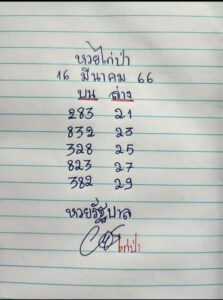 หวยไก่ป่า
16 มีนาคม 66
บน ล่าง
283 21
832 23
328 25
823 27
382 29
หวยรัฐบาล
ไก่ป่า